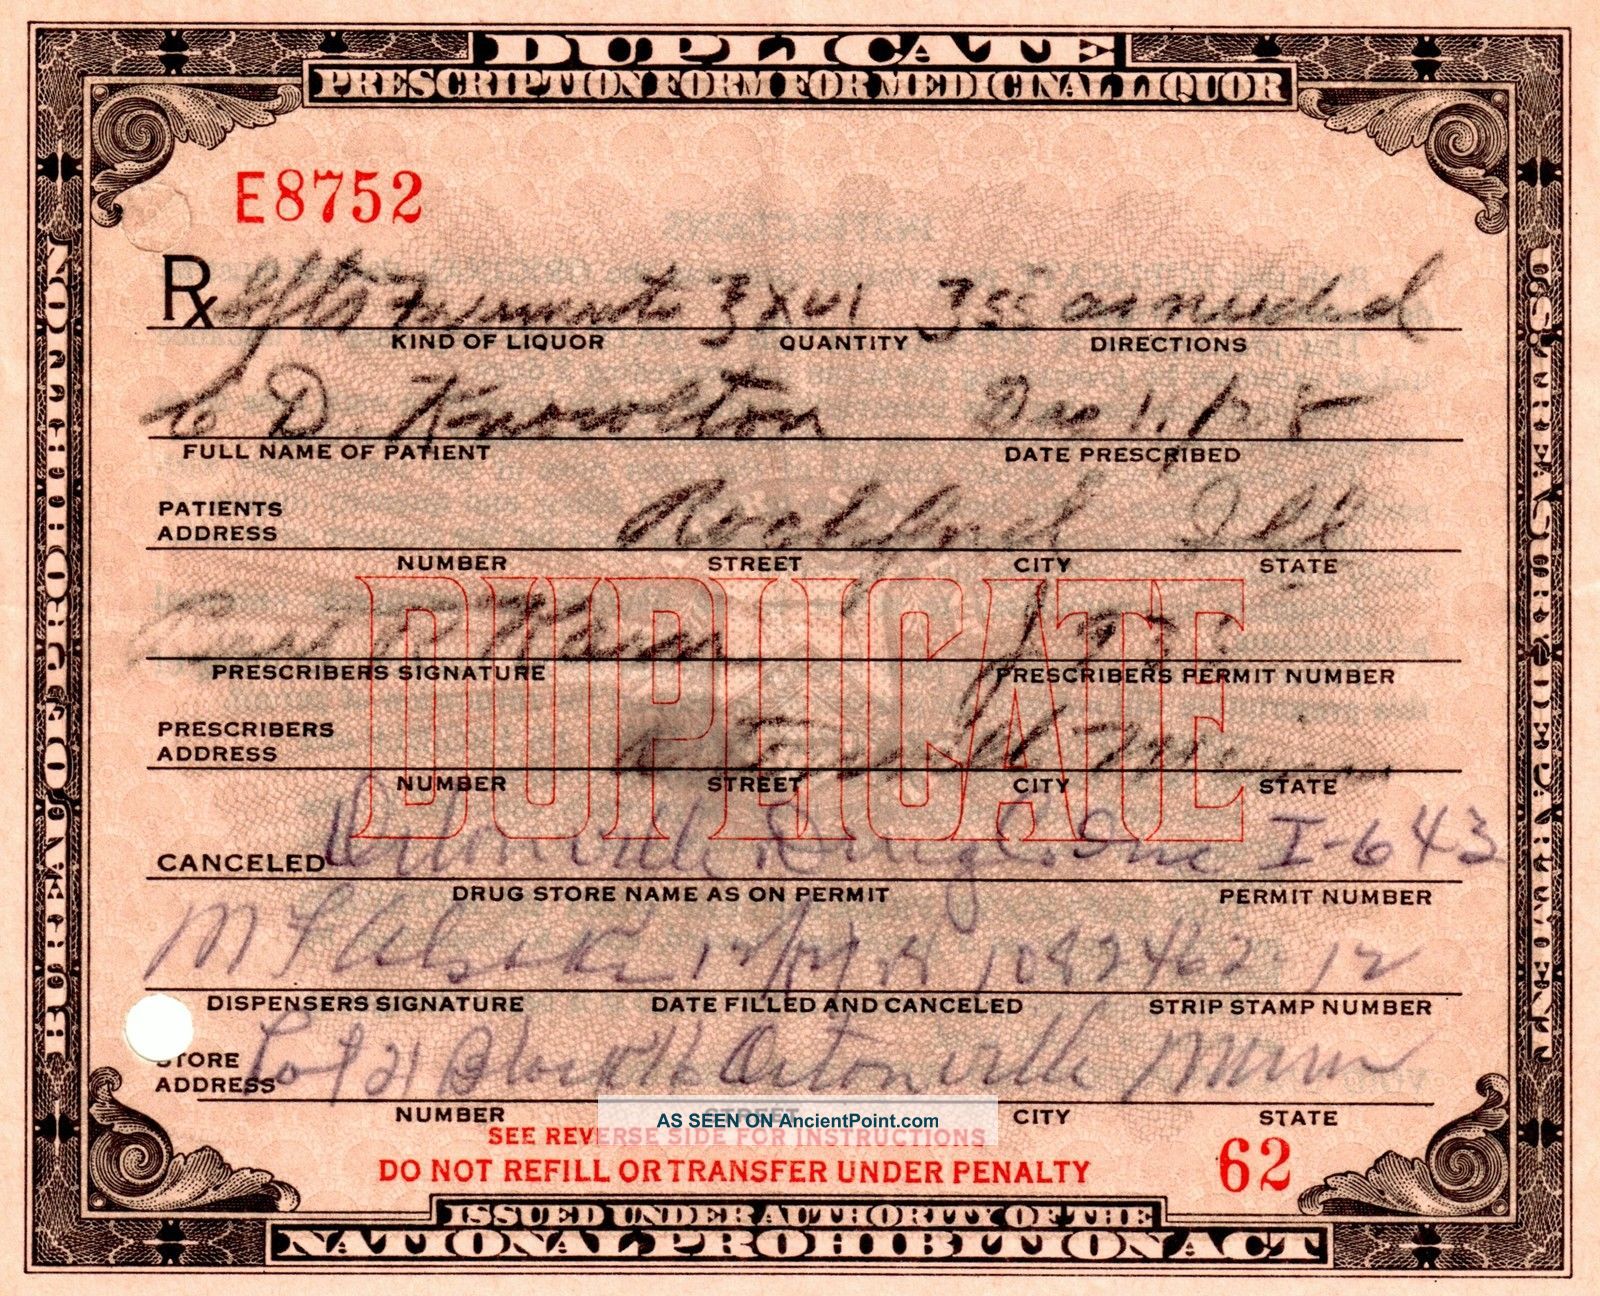 DUPLICATE
PRESCRIPTION FORM FOR MEDICINAL LIQUOR
E8752
Rx Spts Frumenti ℥ xvi ℥ss as needed
KIND OF LIQUOR QUANTITY DIRECTIONS
D. Knowlton Dec 1,
FULL NAME OF PATIENT DATE PRESCRIBED
PATIENTS
ADDRESS
Ill
NUMBER STREET CITY STATE
PRESCRIBERS SIGNATURE PRESCRIBERS PERMIT NUMBER
PRESCRIBERS
ADDRESS
Minn
NUMBER STREET CITY STATE
DUPLICATE
CANCELED Ortonville Drug Co Inc I-643
DRUG STORE NAME AS ON PERMIT PERMIT NUMBER
M 1092462-12
DISPENSERS SIGNATURE DATE FILLED AND CANCELED STRIP STAMP NUMBER
STORE
ADDRESS
Lot 21 Block Ortonville Minn
NUMBER STREET CITY STATE
AS SEEN ON AncientPoint.com
SEE REVERSE SIDE FOR INSTRUCTIONS
DO NOT REFILL OR TRANSFER UNDER PENALTY
62
ISSUED UNDER AUTHORITY OF THE
NATIONAL PROHIBITION ACT